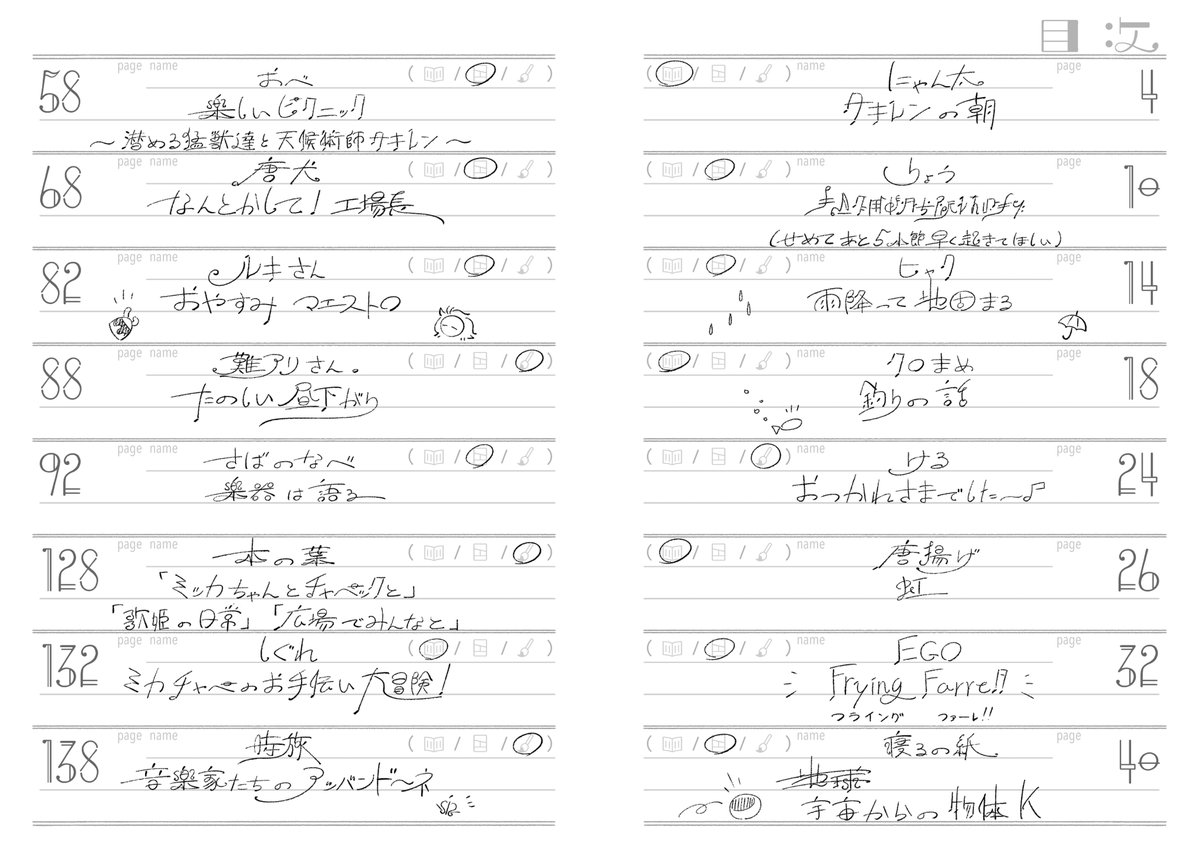 目次
name page
にゃん太。 4
サキレンの朝
name page
りょう 10
(せめてあと5小節早く起きてほしい)
name page
ヒャク 14
雨降って地固まる
name page
クロまめ 18
釣りの話
name page
ける 24
おつかれさまでした〜♪
name page
唐揚げ 26
虹
name page
EGO 32
Frying Farre!!
フライング ファーレ!!
name page
寝るの紙 40
宇宙からの物体K
page name
58 おべ
楽しいピクニック
〜潜める猛獣達と天候術師サキレン〜
page name
68 唐犬
なんとかして!工場長
page name
82 ルキさん
おやすみ マエストロ
page name
88 難アリさん。
たのしい昼下がり
page name
92 さばのなべ
楽器は語る
page name
128 木の葉
「ミッカちゃんとチャペックと」
「歌姫の日常」「広場でみんなと」
page name
132 しぐれ
ミカチャペのお手伝い大冒険!
page name
138 時旅
音楽家たちのアッバンドーネ